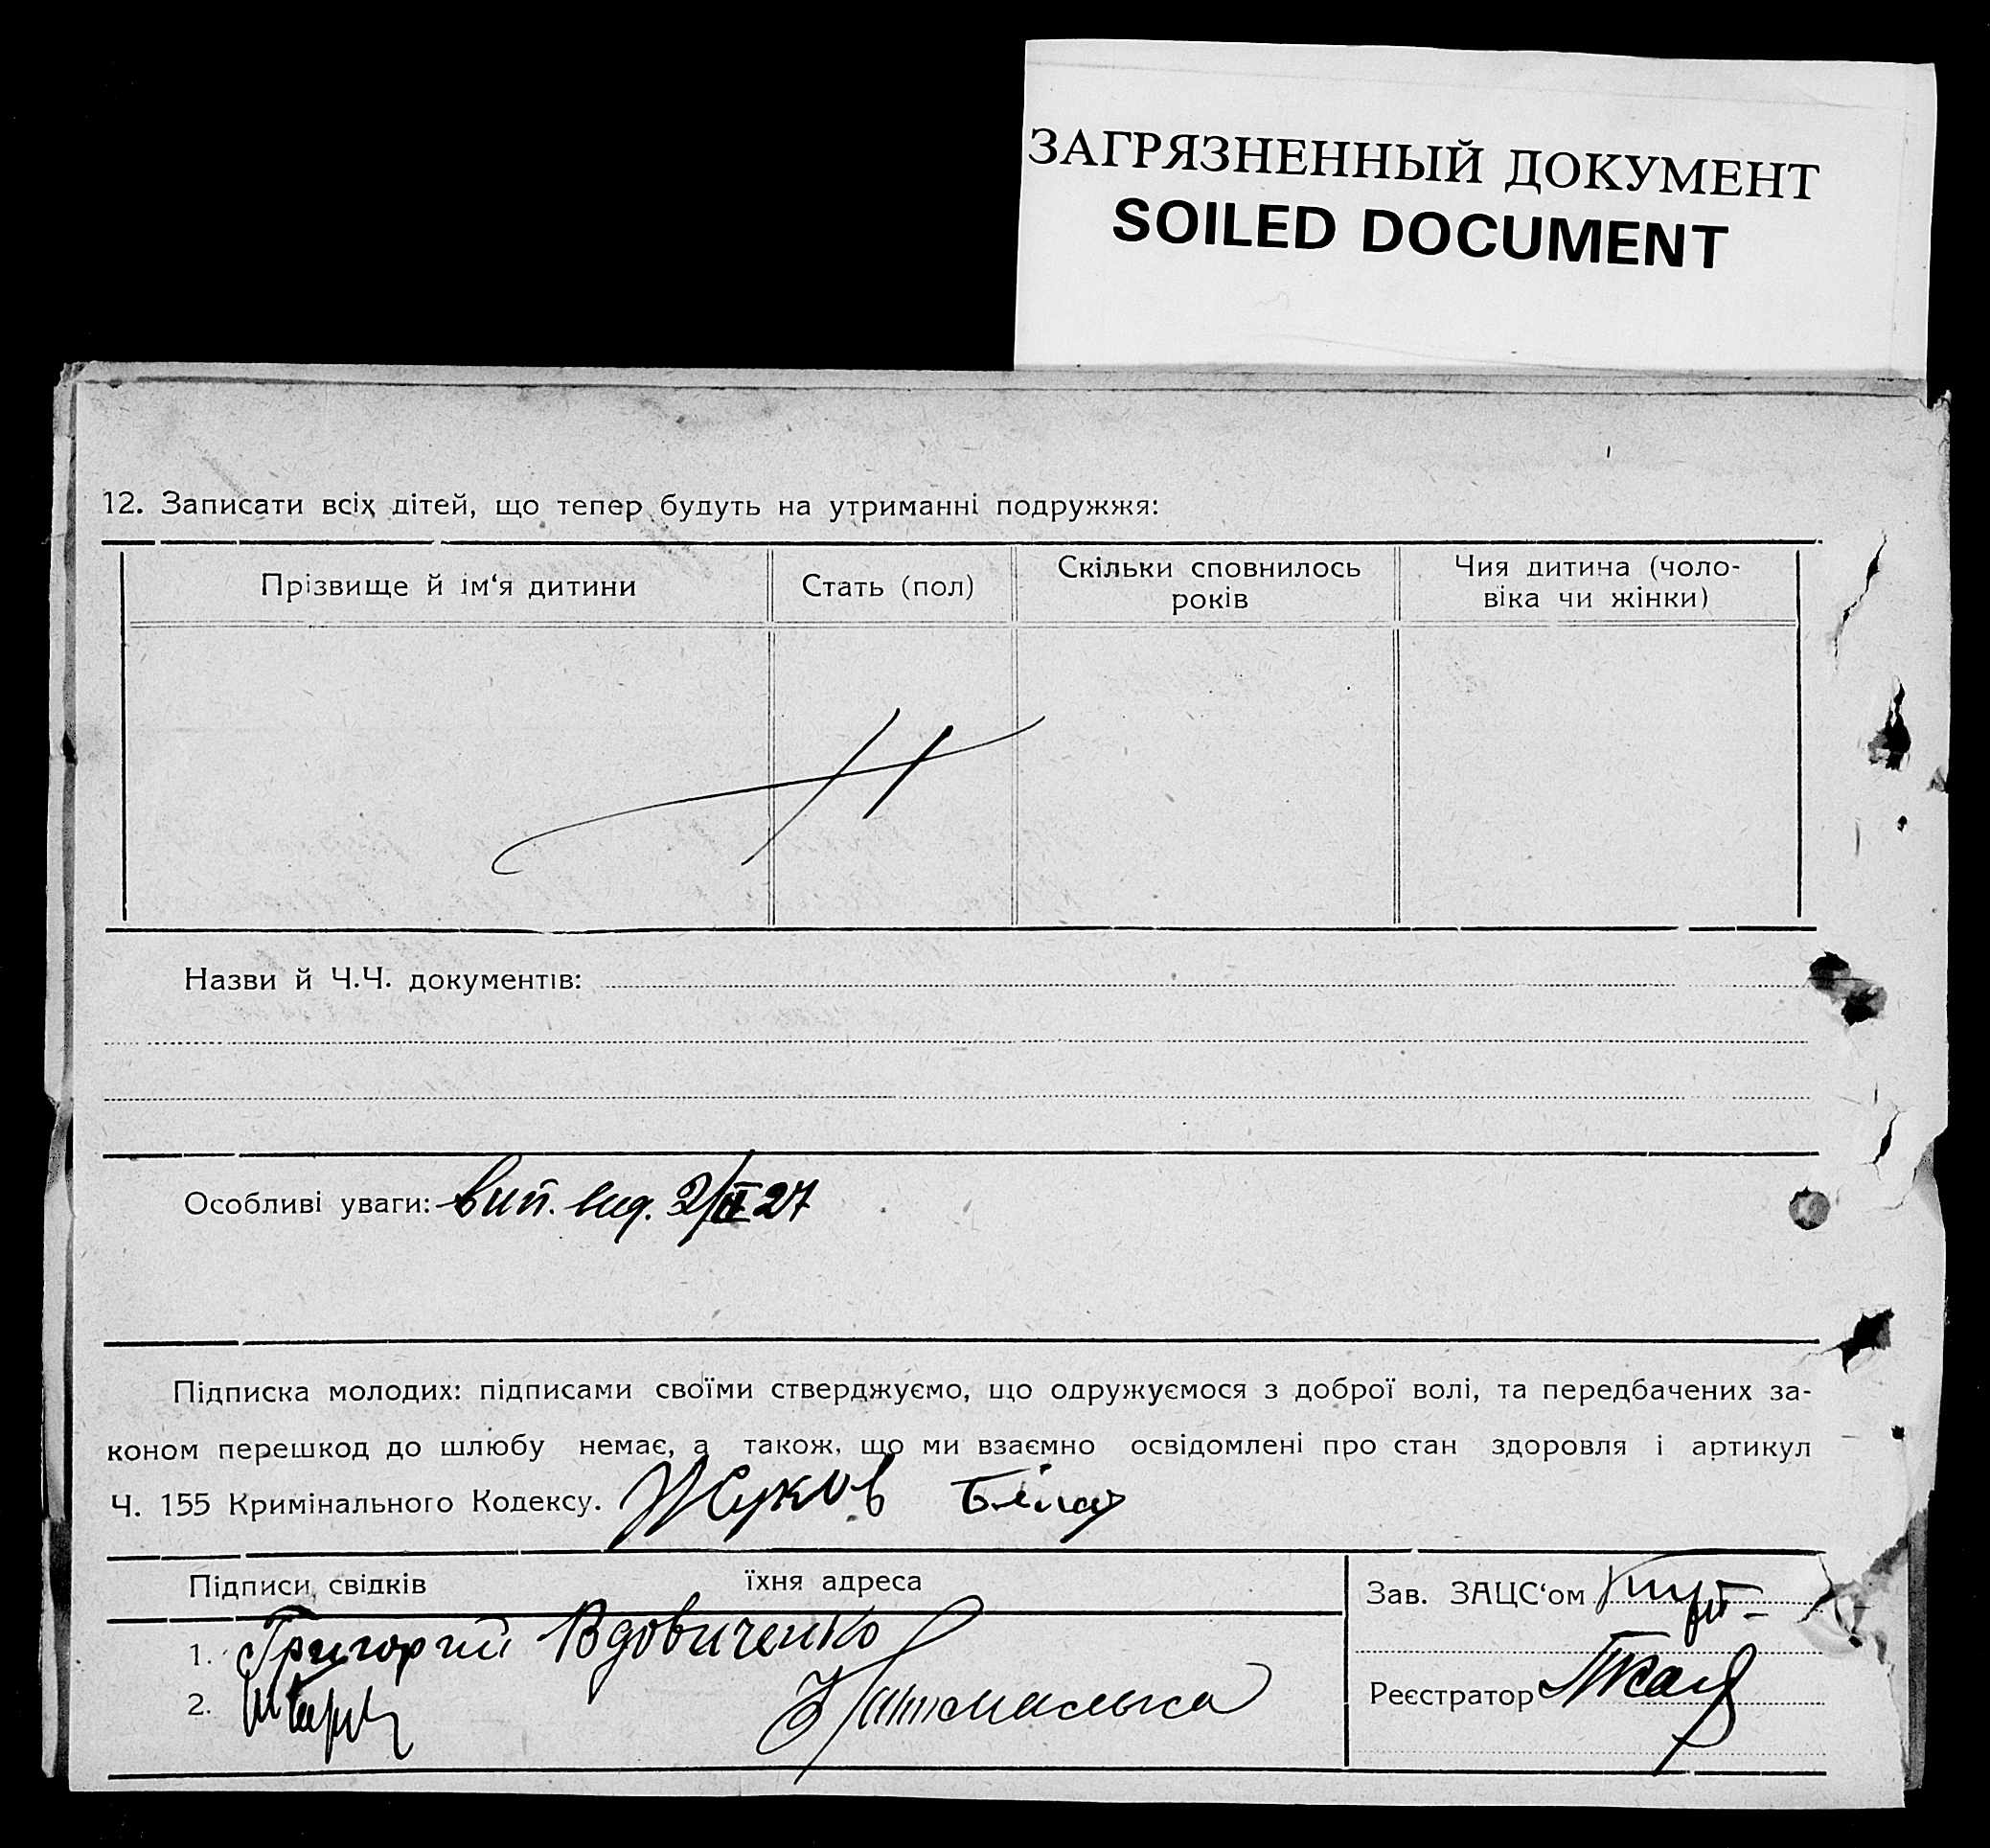 ЗАГРЯЗНЕННЫЙ ДОКУМЕНТ
SOILED DOCUMENT
12. Записати всіх дітей, що тепер будуть на утриманні подружжя:
Прізвище й ім‘я дитини
Стать (пол)
Скільки сповнилось
років
Чия дитина (чоло-
віка чи жінки)
Назви й Ч.Ч. документів:
Особливі уваги: вип. вид. 2/II 27
Підписка молодих: підписами своїми стверджуємо, що одружуємося з доброї волі, та передбачених за-
коном перешкод до шлюбу немає, а також, що ми взаємно освідомлені про стан здоровля і артикул
Ч. 155 Кримінального Кодексу. Жуков
Підписи свідків їхня адреса
1. Григорий Вдовиченко
2.
Зав. ЗАЦС‘ом
Реєстратор